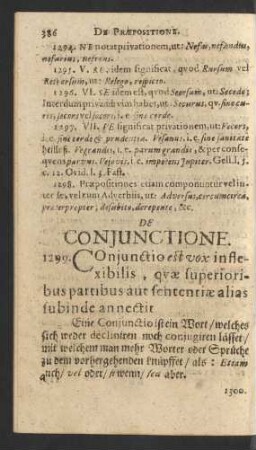 386 DE PRÆPOSITIONE.
1294. NE notat privationem, ut: Nefas, nefandus,
nefarius, nefrens.
1295. V. RE, idem significat, qvod Rursum vel
Retrorsum, ut: Relego, repicio.
1296. VI. SE idem est, qvod Seorsum, ut: Secedo;
Interdum privandi vim habet, ut: Securus, qv. sine cu-
ris, secors vel socors, i. e. sine corde.
1297. VII. VE significat privationem, ut: Vecors,
i. e. sine corde & prudentia. Vesanus. i. e. sine sanitate
Vegrandis, i. e. parum grandis, & per conse-
qvens parvus. Vejovis. i. e. impotens Jupiter. Gell. l. 5.
c. 12. Ovid. l. 3. Fast.
1298. Præpositiones etiam componuntur vel in-
ter se, vel cum Adverbiis, ut: Adversus, circumcirca,
desubito, derepente, &c.
DE
CONJUNCTIONE.
1299. COnjunctio est vox infle-
xibilis, qvæ superiori-
bus partibus aut sententiæ alias
subinde annectit
Eine Conjunctio ist ein Wort / welches
sich weder decliniren noch conjugiren lässet /
mit welchem man mehr Wörter oder Sprüche
zu dem vorhergehenden knüpffet / als: Etiam
auch / vel oder / si wenn / seu aber.
1300.